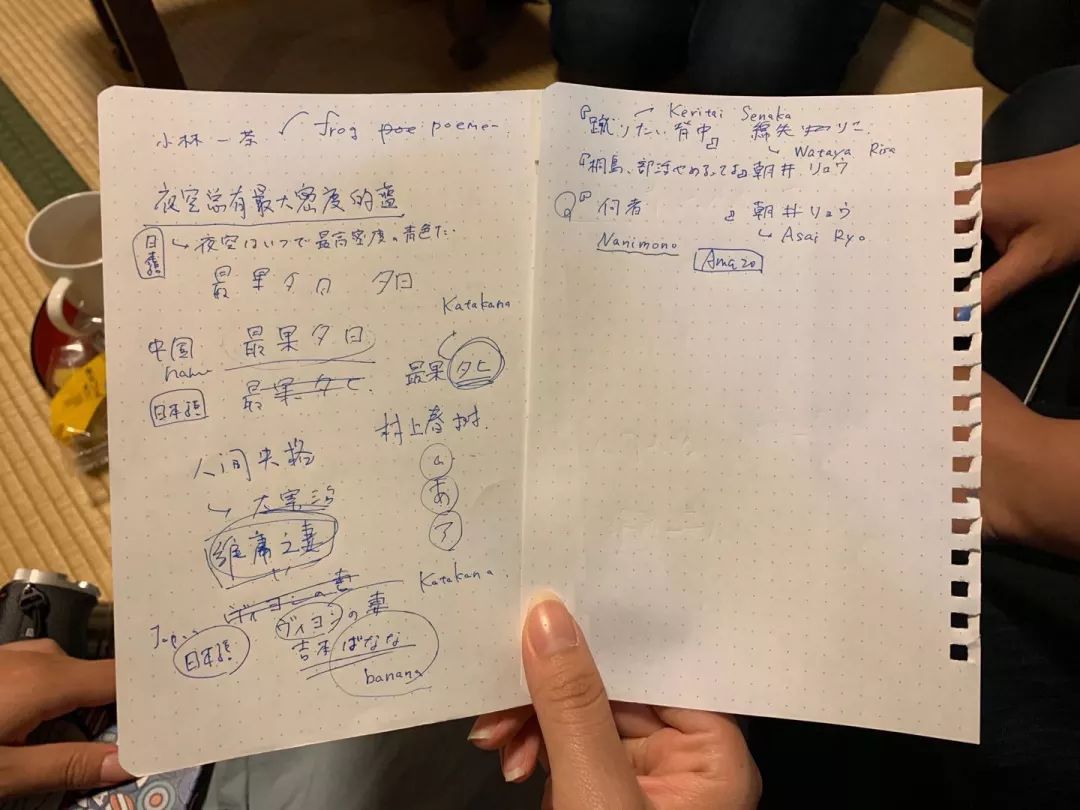 小林一茶 frog poe poeme
夜空总有最大密度的蓝
日本語
夜空はいつで最高密度の青色だ
最果夕日 夕日
Katakana
中国 最果夕日
name
最果タヒ
日本語 最果タヒ
村上春樹
人间失格 a
太宰治 あ
维庸之妻 ア
ヴィヨンの妻 Katakana
Japan ヴィヨンの妻
日本語 吉本ばなな
banana
Keritai Senaka
『蹴りたい背中』 綿矢りさ
Wataya Risa
『桐島、部活やめるってよ』朝井リョウ
『何者』 朝井リョウ
Nanimono Asai Ryo
Amazo